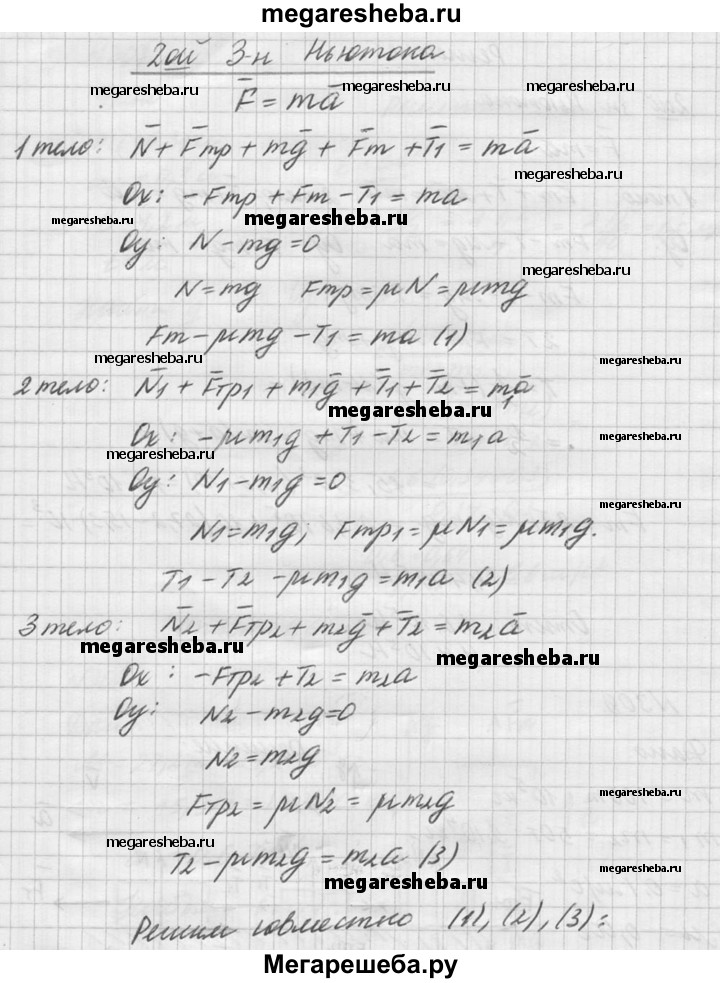 megaresheba.ru
2ой З-н Ньютона
megaresheba.ru
F̄ = mā
megaresheba.ru
1 тело: N̄ + F̄тр + mḡ + F̄т + T̄1 = mā
megaresheba.ru
Ox: -Fтр + Fт - T1 = ma
megaresheba.ru
megaresheba.ru
Oy: N - mg = 0
megaresheba.ru
N = mg Fтр = μN = μmg
Fт - μmg - T1 = ma (1)
megaresheba.ru
megaresheba.ru
2 тело: N̄1 + F̄тр1 + m1ḡ + T̄1 + T̄2 = m1ā
megaresheba.ru
Ox: -μm1g + T1 - T2 = m1a
megaresheba.ru
Oy: N1 - m1g = 0
megaresheba.ru
N1 = m1g; Fтр1 = μN1 = μm1g.
T1 - T2 - μm1g = m1a (2)
3 тело: N̄2 + F̄тр2 + m2ḡ + T̄2 = m2ā
megaresheba.ru
megaresheba.ru
Ox: -Fтр2 + T2 = m2a
Oy: N2 - m2g = 0
N2 = m2g
megaresheba.ru
Fтр2 = μN2 = μm2g
megaresheba.ru
T2 - μm2g = m2a (3)
megaresheba.ru
megaresheba.ru
Решим совместно (1), (2), (3):
Мегарешеба.ру